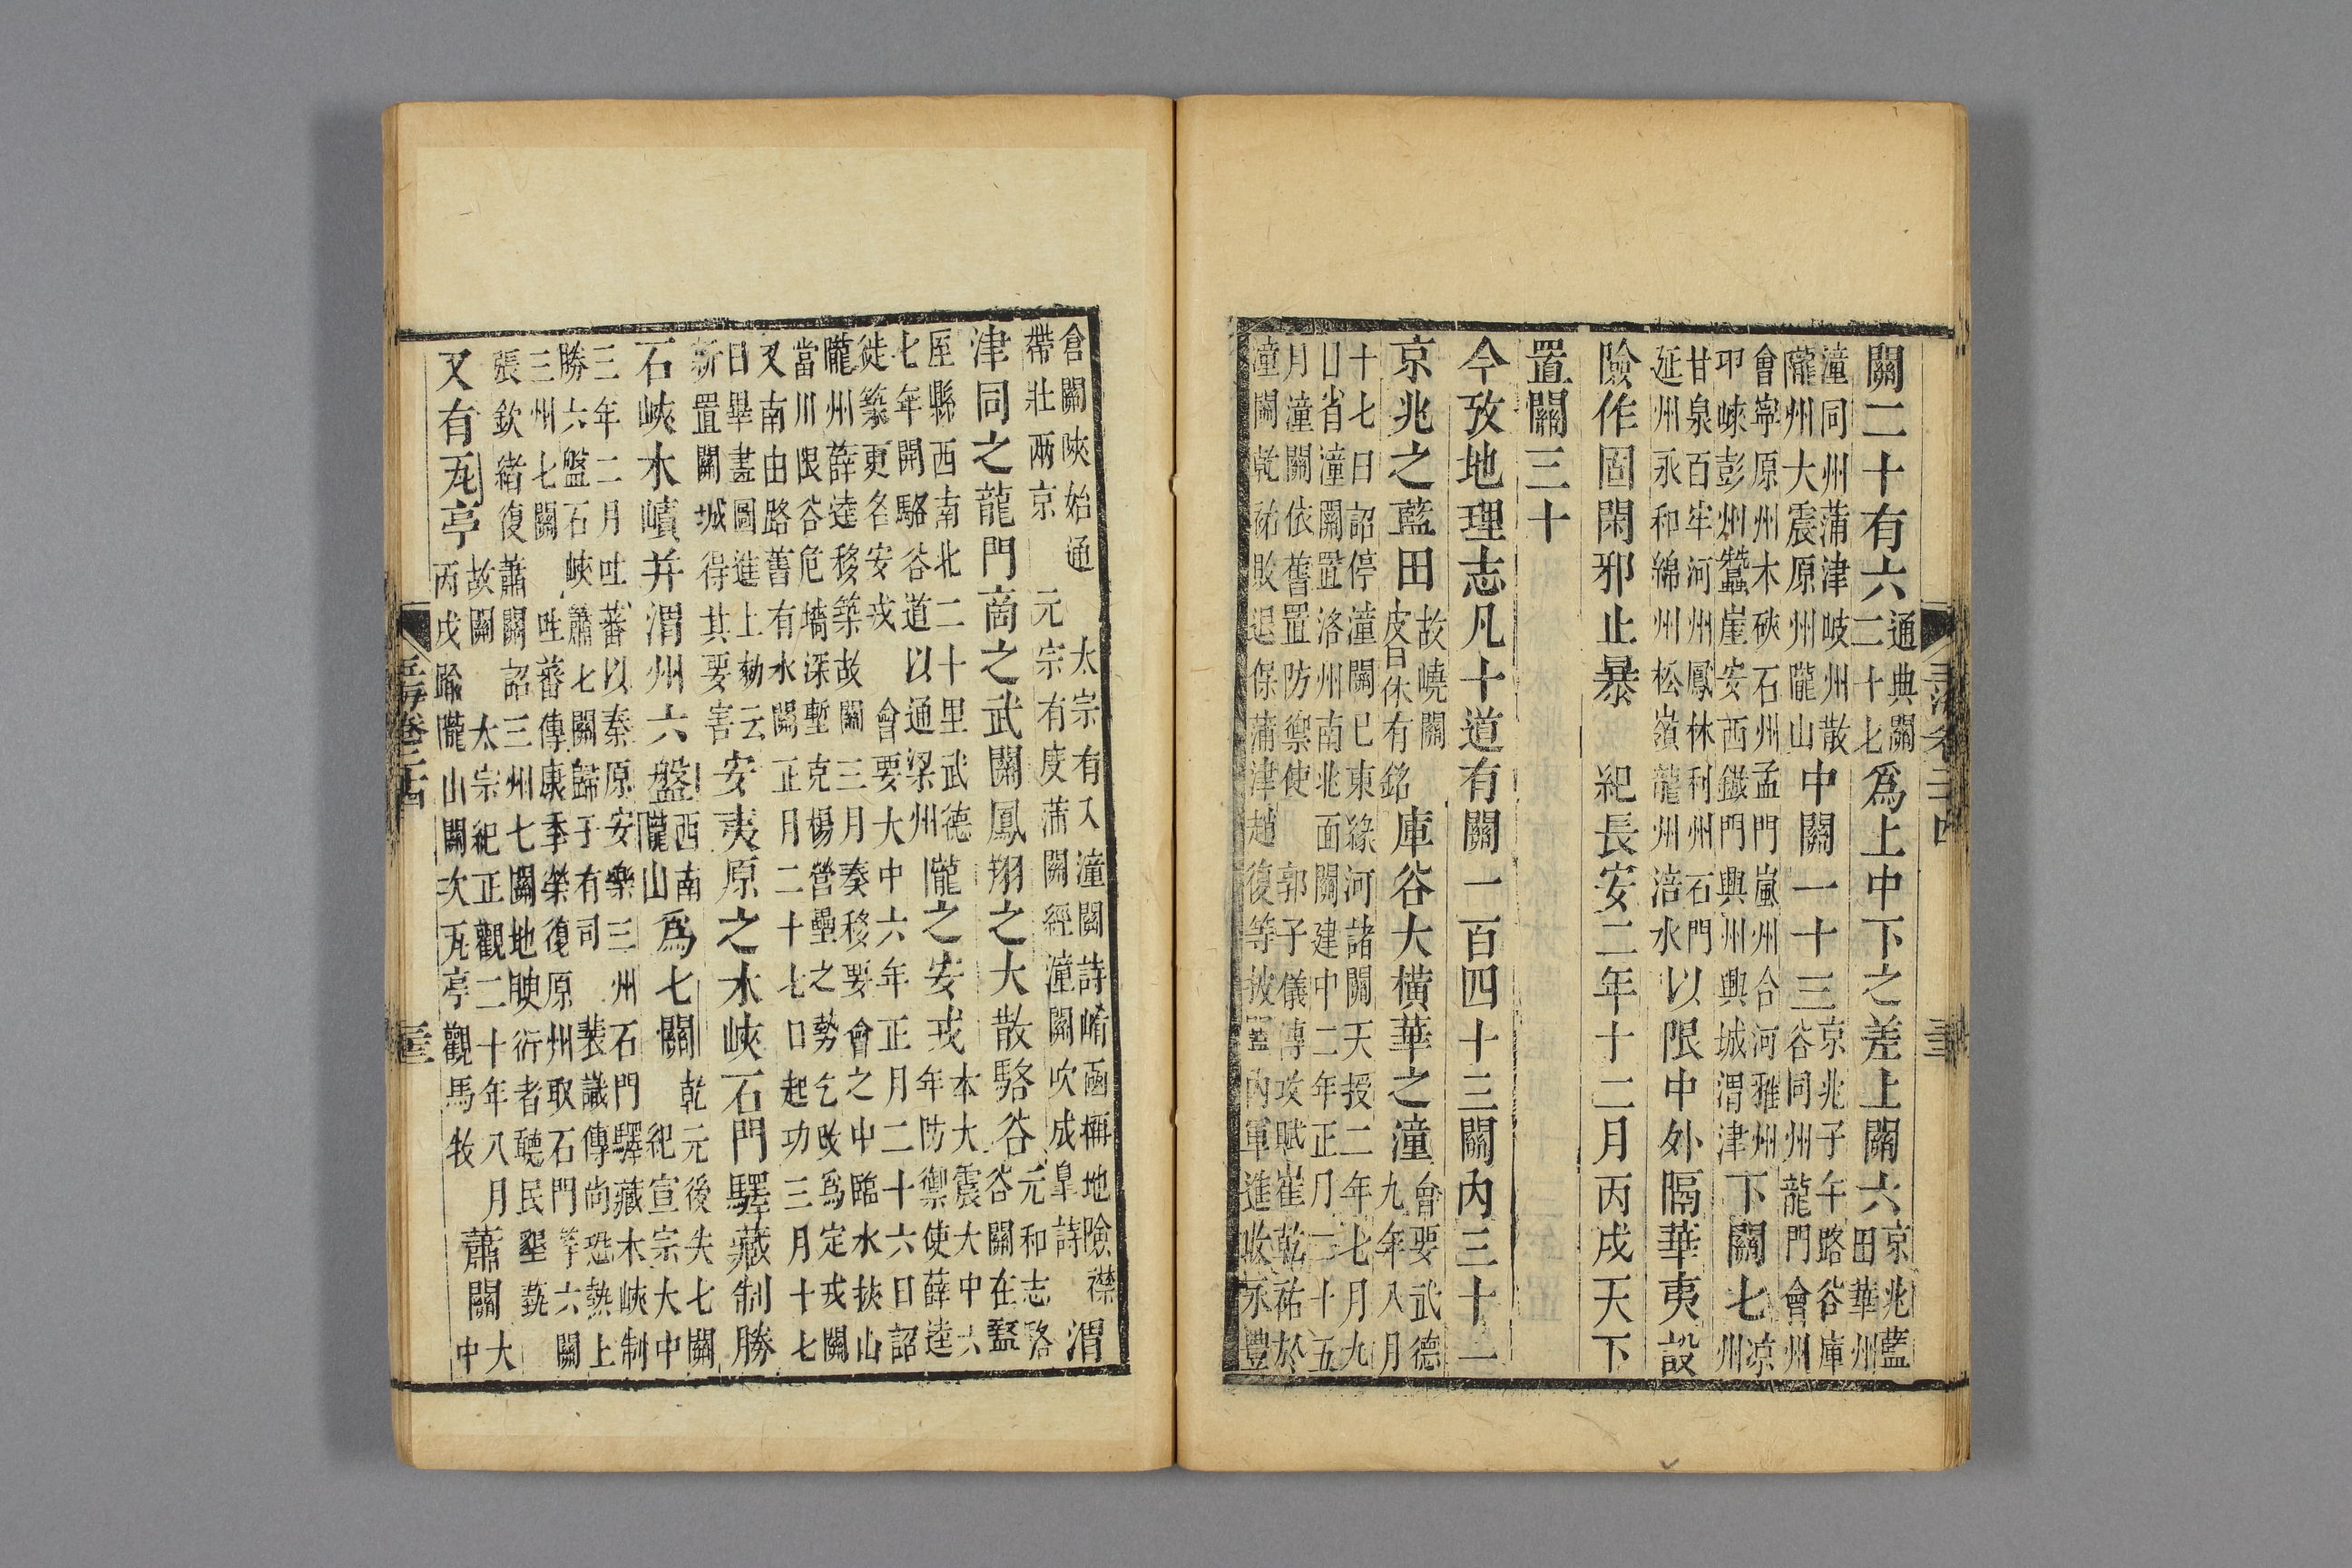 關二十有六
通典關
二十七
爲上中下之差上關六
京兆藍
田華州
潼同州蒲津岐州散
隴州大震原州隴山
中關一十三
京兆子午路谷庫
谷同州龍門會州
會寧原州木硤石州孟門嵐州合河雅州
卭崍彭州蠶崖安西鐵門興州興城渭津
下關七
凉
州
甘泉百牢河州鳳林利州石門
延州永和綿州松嶺龍州涪水
以限中外隔華夷設
險作固閑邪止暴 紀長安二年十二月丙戌天下
置關三十
今攷地理志凡十道有關一百四十三關内三十二
京兆之藍田
故嶢關
皮日休有銘
庫谷大橫華之潼
會要武德
九年八月
十七日詔停潼關已東緣河諸關天授二年七月九
日省潼關置洛州南北面關建中二年正月二十五
月潼關依舊置防禦使 郭子儀傳攻賊崔乾祐於
潼關乾祐敗退保蒲津趙復等披内軍進收永豐
倉關陝始通 太宗有入潼關詩崤函稱地險襟
帶壯兩京 元宗有度蒲關經潼關吹成臯詩
渭
津同之龍門商之武關鳳翔之大散駱谷
元和志駱
谷關在盩
厔縣西南北二十里武德
七年開駱谷道以通梁州
隴之安戎
本大震大中六
年防禦使薛逵
徙築更名安戎 會要大中六年正月二十六日詔
隴州薛逵移築故關三月奏移要會之中臨水挾山
當川限谷危墻深塹克楊營壘之勢乞改爲定戎關
又南由路舊有水關正月二十七日起功三月十七
日畢畫圖進上勑云
新置關城得其要害
安夷原之木峽石門驛藏制勝
石峽木㟙并渭州六盤
西南
隴山
爲七關
乾元後失七關
紀宣宗大中
三年二月吐蕃以秦原安樂三州石門驛藏木峽制
勝六盤石峽蕭七關歸于有司 裴識傳尚恐熱上
三州七關 吐蕃傳康季榮復原州取石門等六關
張欽緒復蕭關詔三州七關地腴衍者聽民墾藝
又有瓦亭
故關 太宗紀正觀二十年八月
丙戌踰隴山關次瓦亭觀馬牧
蕭關
大
中